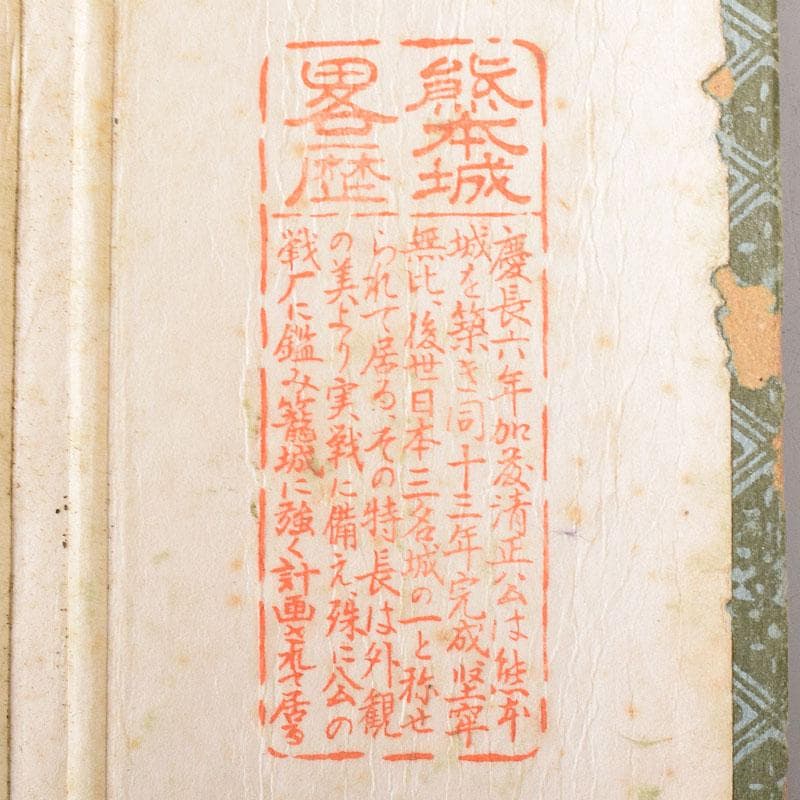 熊本城
畧歴
慶長六年加藤清正公は熊本
城を築き同十三年完成、堅牢
無比、後世日本三名城の一と称せ
られて居る、その特長は外観
の美より実戦に備え、殊に公の
戦厂に鑑み籠城に強く計画されて居る